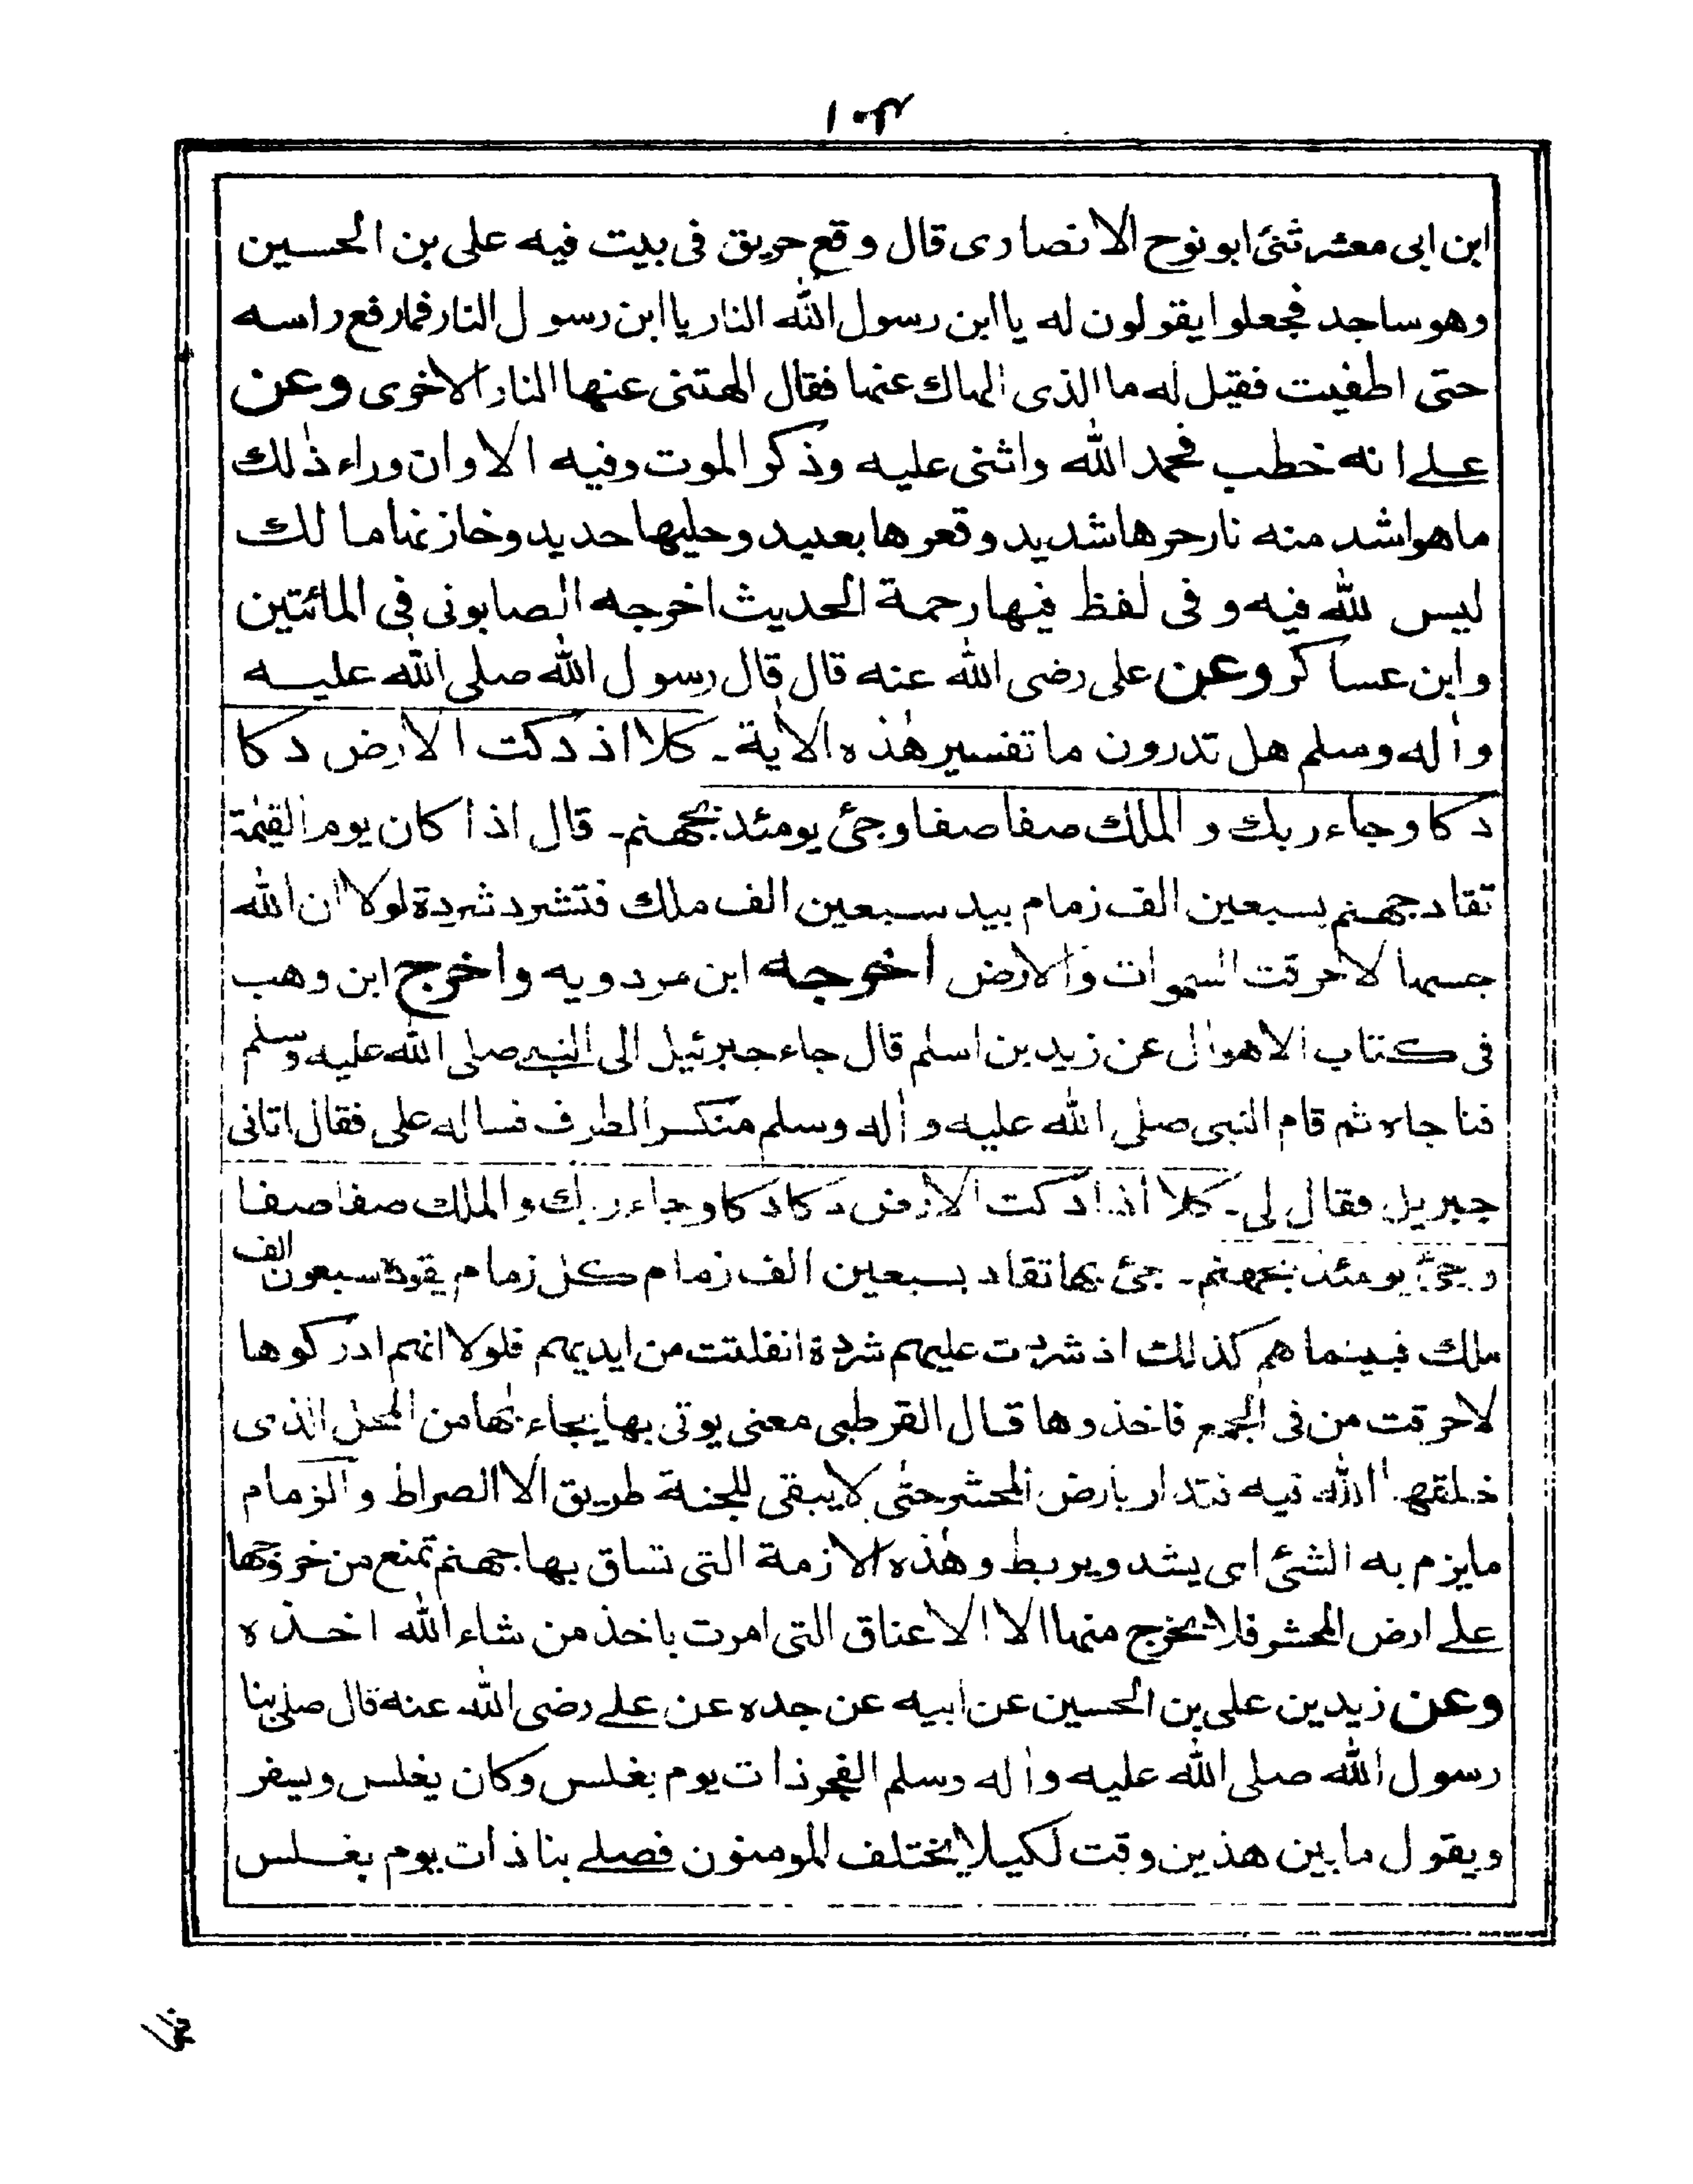 ١٠٤
ابن ابى معشر ثنى ابو نوح الانصارى قال وقع حريق فى بيت فيه على بن الحسين
وهو ساجد فجعلوا يقولون له يا ابن رسول الله النار يا ابن رسول النار فما رفع راسه
حتى اطفيت فقيل له ما الذى الهاك عنها فقال الهتنى عنها النار الاخرى وعن
على انه خطب فحمد الله واثنى عليه وذكر الموت وفيه الا وان وراء ذٰلك
ما هو اشد منه نار حرها شديد وقعرها بعيد وحليها حديد وخازنها مالك
ليس لله فيه وفى لفظ فيها رحمة الحديث اخرجه الصابونى فى المائتين
وابن عساكر وعن على رضى الله عنه قال قال رسول الله صلى الله عليه
واٰله وسلم هل تدرون ما تفسير هٰذه الاٰية ـ كلا اذ دكت الارض دكا
دكا وجاء ربك والملك صفا صفا وجئ يومئذ بجهنم ـ قال اذا كان يوم القيٰمة
تقاد جهنم بسبعين الف زمام بيد سبعين الف ملك فتشرد شردة لولا ان الله
حبسها لاحرقت السموات والارض اخرجه ابن مردويه واخرج ابن وهب
فى كتاب الاهوال عن زيد بن اسلم قال جاء جبرئيل الى النبى صلى الله عليه وسلم
فناجاه ثم قام النبى صلى الله عليه واٰله وسلم منكسر الطرف فساله على فقال اتانى
جبريل فقال لى ـ كلا اذا دكت الارض دكا دكا وجاء ربك والملك صفا صفا
وجئ يومئذ بجهنم ـ جئ بها تقاد بسبعين الف زمام كل زمام يقوده سبعون الف
ملك فبينما هم كذلك اذ شردت عليهم شردة انفلتت من ايديهم فلولا انهم ادركوها
لاحرقت من فى الجمع فاخذوها قال القرطبى معنى يوتى بها يجاء بها من المحل الذى
خلقها الله فيه فتدار بارض المحشر حتى لا يبقى للجنة طريق الا الصراط والزمام
ما يزم به الشئ اى يشد ويربط وهٰذه الازمة التى تساق بها جهنم تمنع من خروجها
على ارض المحشر فلا يخرج منها الا الاعناق التى امرت باخذ من شاء الله اخذه
وعن زيد بن على بن الحسين عن ابيه عن جده عن على رضى الله عنه قال صلى بنا
رسول الله صلى الله عليه واٰله وسلم الفجر ذات يوم بغلس وكان يغلس ويسفر
ويقول ما بين هذين وقت لكيلا يختلف المومنون فصلى بنا ذات يوم بغلس